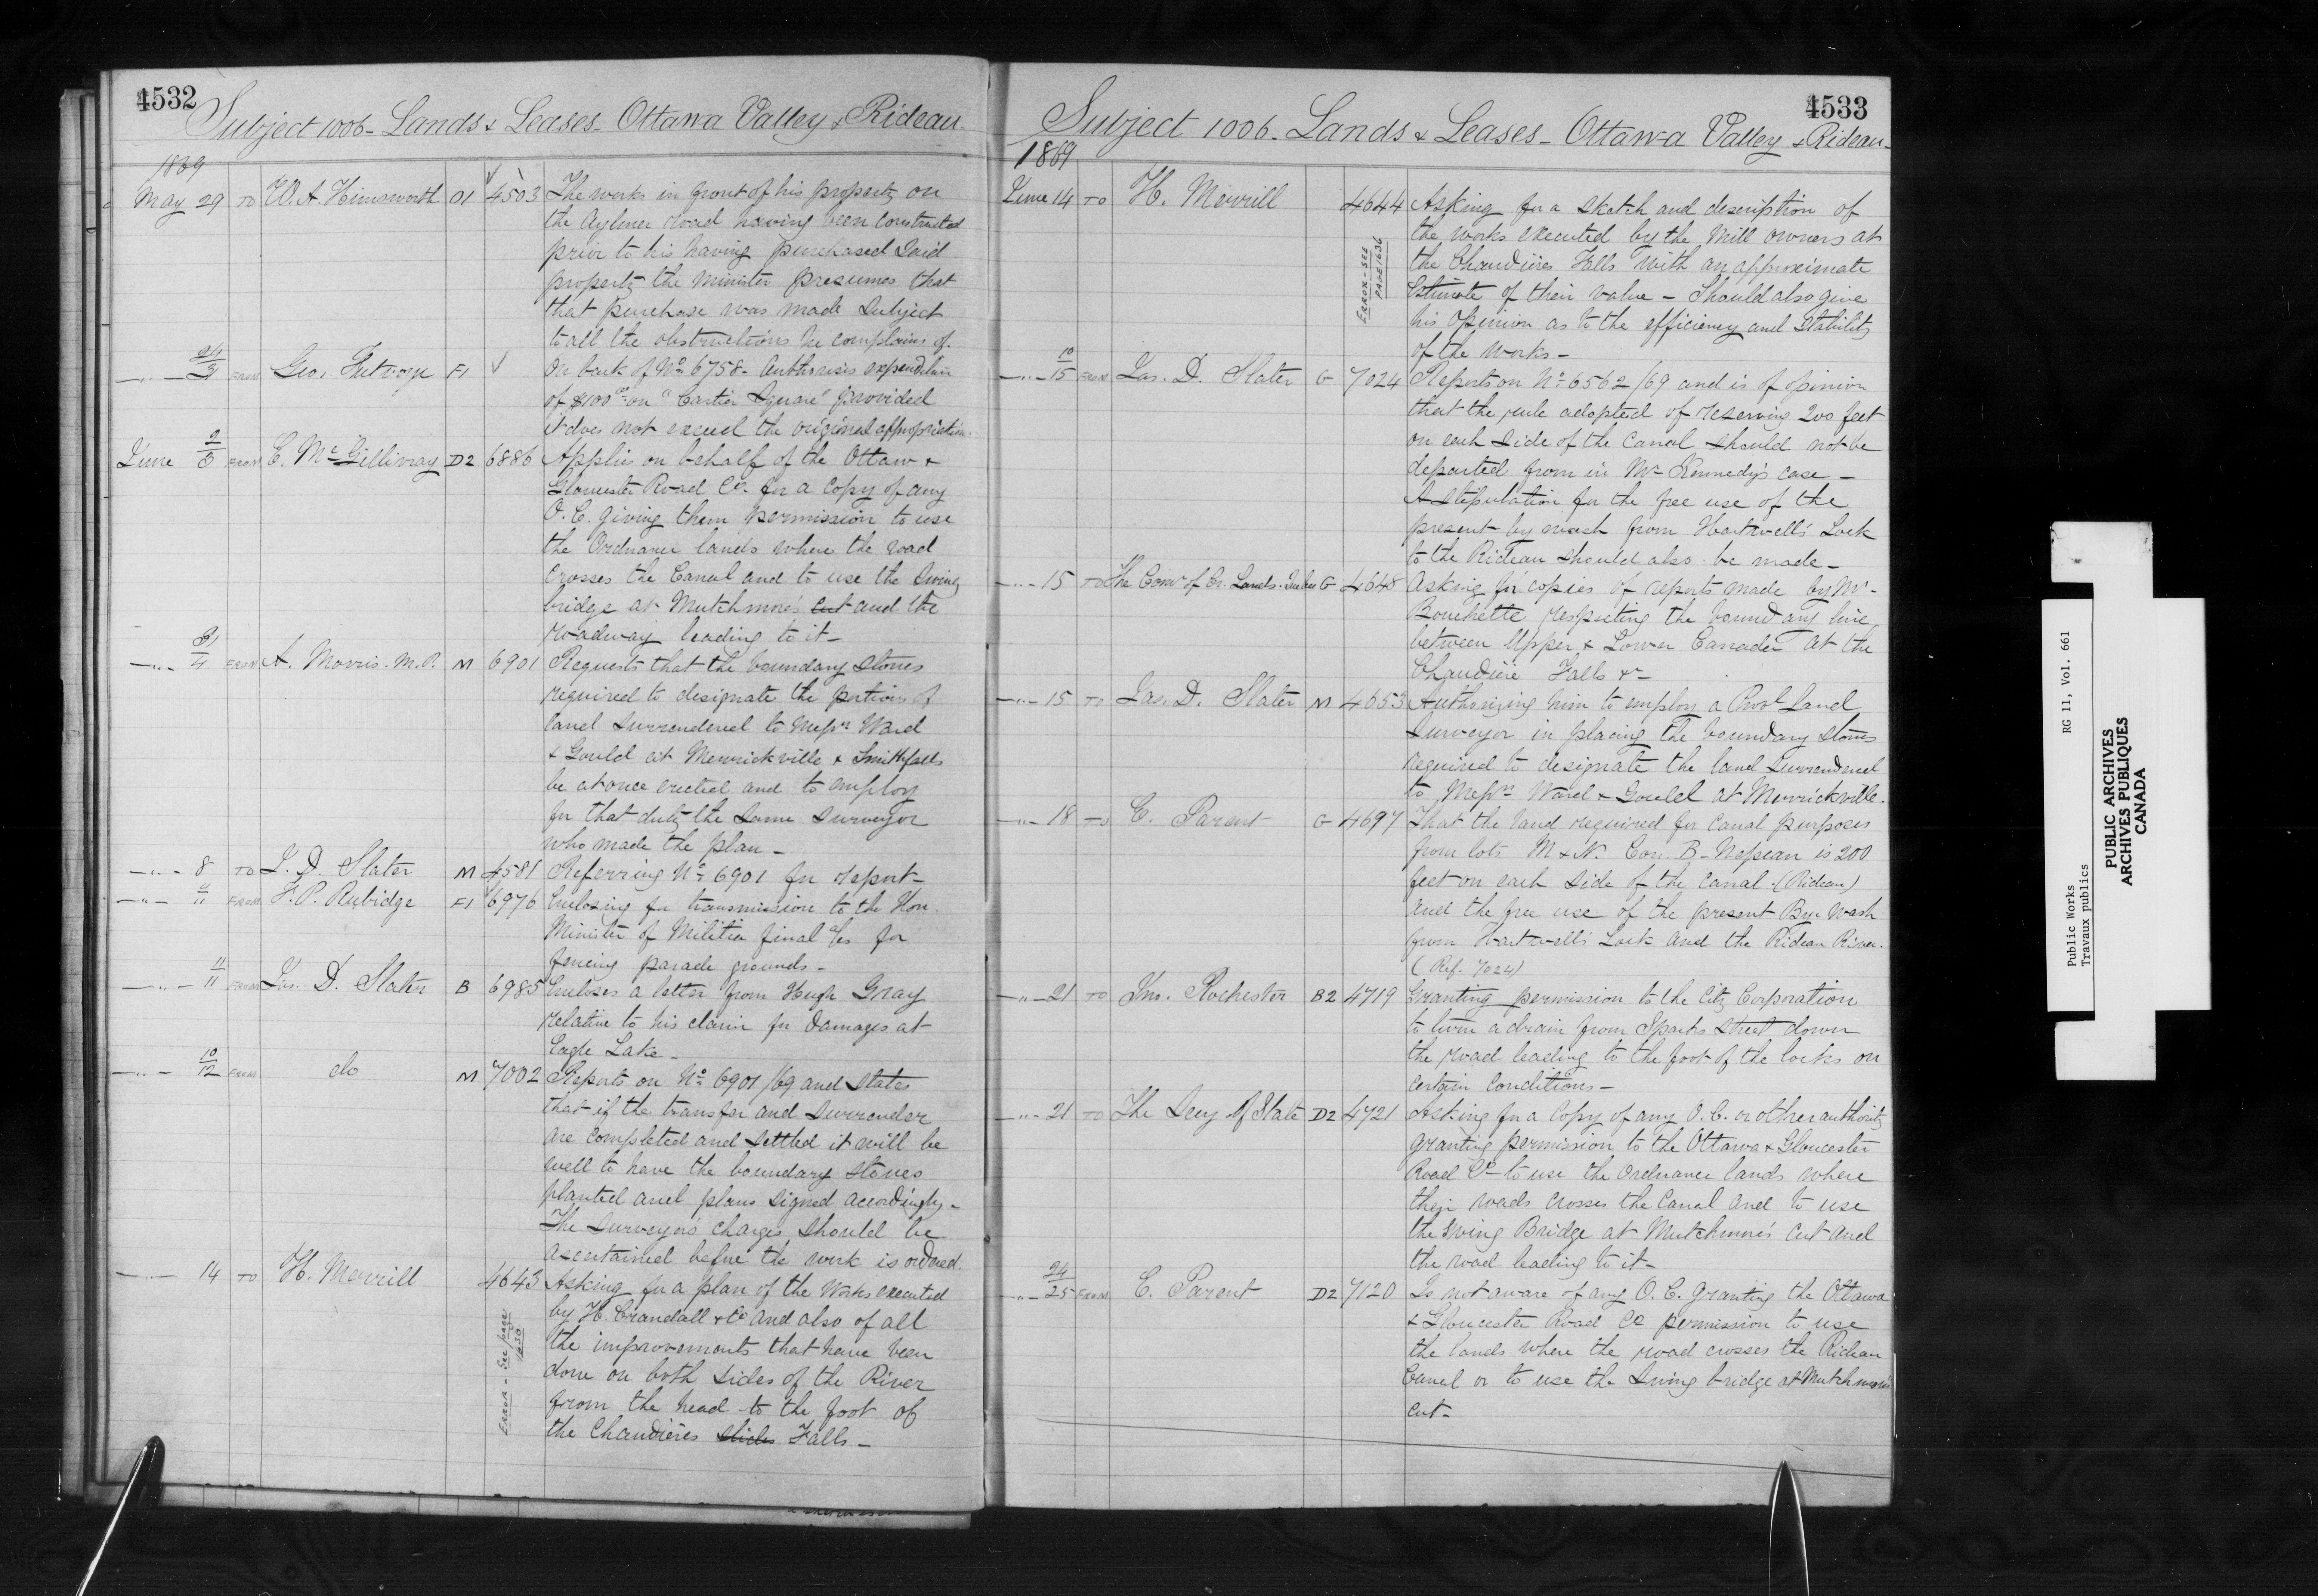 4532
Subject 1006 - Lands & Leases - Ottawa Valley & Rideau.
1869
May 29 TO W. A. Himsworth O1 4503 The works in front of his property on
the Aylmer road having been constructed
prior to his having purchased said
property the Minister presumes that
that purchase was made subject
to all the obstructions he complains of.
—"— FROM Geo. Futvoye F1 On back of No 6758 - Authorises expenditure
of $100 00 on "Cartier Square" provided
it does not exceed the original appropriation.
June 2/5 FROM C. McGillivray D2 6886 Applies on behalf of the Ottaw &
Gloucester Road Co. for a copy of any
O.C. giving them permission to use
the Ordnance lands where the road
crosses the Canal and to use the swing
bridge at Mutchmore's cut and the
roadway leading to it -
—"— 31/4 FROM A. Morris. M.P. M 6901 Requests that the boundary stones
required to designate the portions of
land surrendered to Messrs Ward
& Gould at Merrickville & Smithfalls
be at once erected and to employ
for that duty the same surveyor
who made the plan -
—"— 8 TO J. D. Slater M 4581 Referring No 6901 for report -
—"— 11/11 FROM F. P. Rubidge F1 6976 Enclosing for transmission to the Hon.
Minister of Militia final a/cs for
fencing parade grounds -
—"— 11/11 FROM Jas. D. Slater B 6985 Encloses a letter from Hugh Gray
relative to his claim for damages at
Eagle Lake -
—"— 10/12 FROM do M 7002 Reports on No 6901/69 and states
that if the transfer and surrender
are completed and settled it will be
well to have the boundary stones
planted and plans signed accordingly -
The surveyors charges should be
ascertained before the work is ordered.
—"— 14 TO H. Merrill 4643 Asking for a plan of the Works executed
by H. Crandall & Co and also of all
the improvements that have been
done on both sides of the River
from the head to the foot of
the Chaudières slides Falls -
ERROR - See page
4533
Subject 1006 - Lands & Leases - Ottawa Valley & Rideau -
1869
June 14 TO H. Merrill 4644 Asking for a sketch and description of
the works executed by the Mill owners at
the Chaudières Falls with an approximate
Estimate of their value - Should also give
his opinion as to the efficiency and stability
of the works -
ERROR - SEE
PAGE 1636
—"— 10/15 FROM Jas. D. Slater G 7024 Reports on No 6562/69 and is of opinion
that the rule adopted of reserving 200 feet
on each side of the canal should not be
departed from in Mr Kennedy's case -
A stipulation for the free use of the
present by wash from Hartwell's Lock
to the Rideau should also be made -
—"— 15 TO The Comr of Cr. Lands. Quebec G 4648 Asking for copies of reports made by Mr -
Bouchette respecting the boundary line
between Upper & Lower Canada at the
Chaudière Falls &c -
—"— 15 TO Jas. D. Slater M 4653 Authorizing him to employ a Provl Land
Surveyor in placing the boundary stones
required to designate the land surrendered
to Messrs Ward & Gould at Merrickville.
—"— 18 TO E. Parent G 4697 That the land required for Canal purposes
from lots M & N. Con. B - Nepean is 200
feet on each side of the canal - (Rideau)
and the free use of the present Bye Wash
from Hartwell's Lock and the Rideau River.
(Ref. 7024)
—"— 21 TO Jno. Rochester B2 4719 Granting permission to the City Corporation
to turn a drain from Sparks Street down
the road leading to the foot of the locks on
certain conditions -
—"— 21 TO The Secy of State D2 4721 Asking for a Copy of any O.C. or other authority
granting permission to the Ottawa & Gloucester
Road Co - to use the Ordnance lands where
their roads crosses the Canal and to use
the swing Bridge at Mutchmore's cut and
the road leading to it -
—"— 24/25 FROM E. Parent D2 7120 Is not aware of any O.C. granting the Ottawa
& Gloucester Road Co permission to use
the lands where the road crosses the Rideau
Canal or to use the swing bridge at Mutchmore's
cut -
Public Works RG 11, Vol. 661
Travaux publics
PUBLIC ARCHIVES
ARCHIVES PUBLIQUES
CANADA